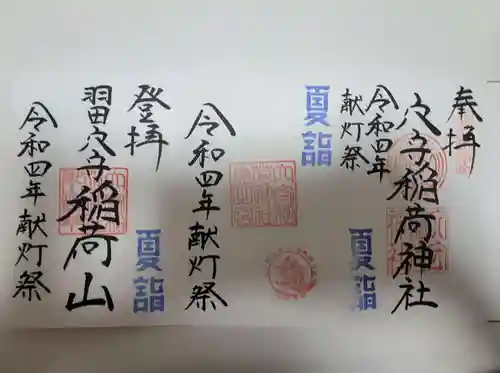 奉拝
穴守稲荷神社
令和四年
献灯祭
夏詣
夏詣
令和四年献灯祭
登拝
夏詣
羽田穴守稲荷山
令和四年献灯祭